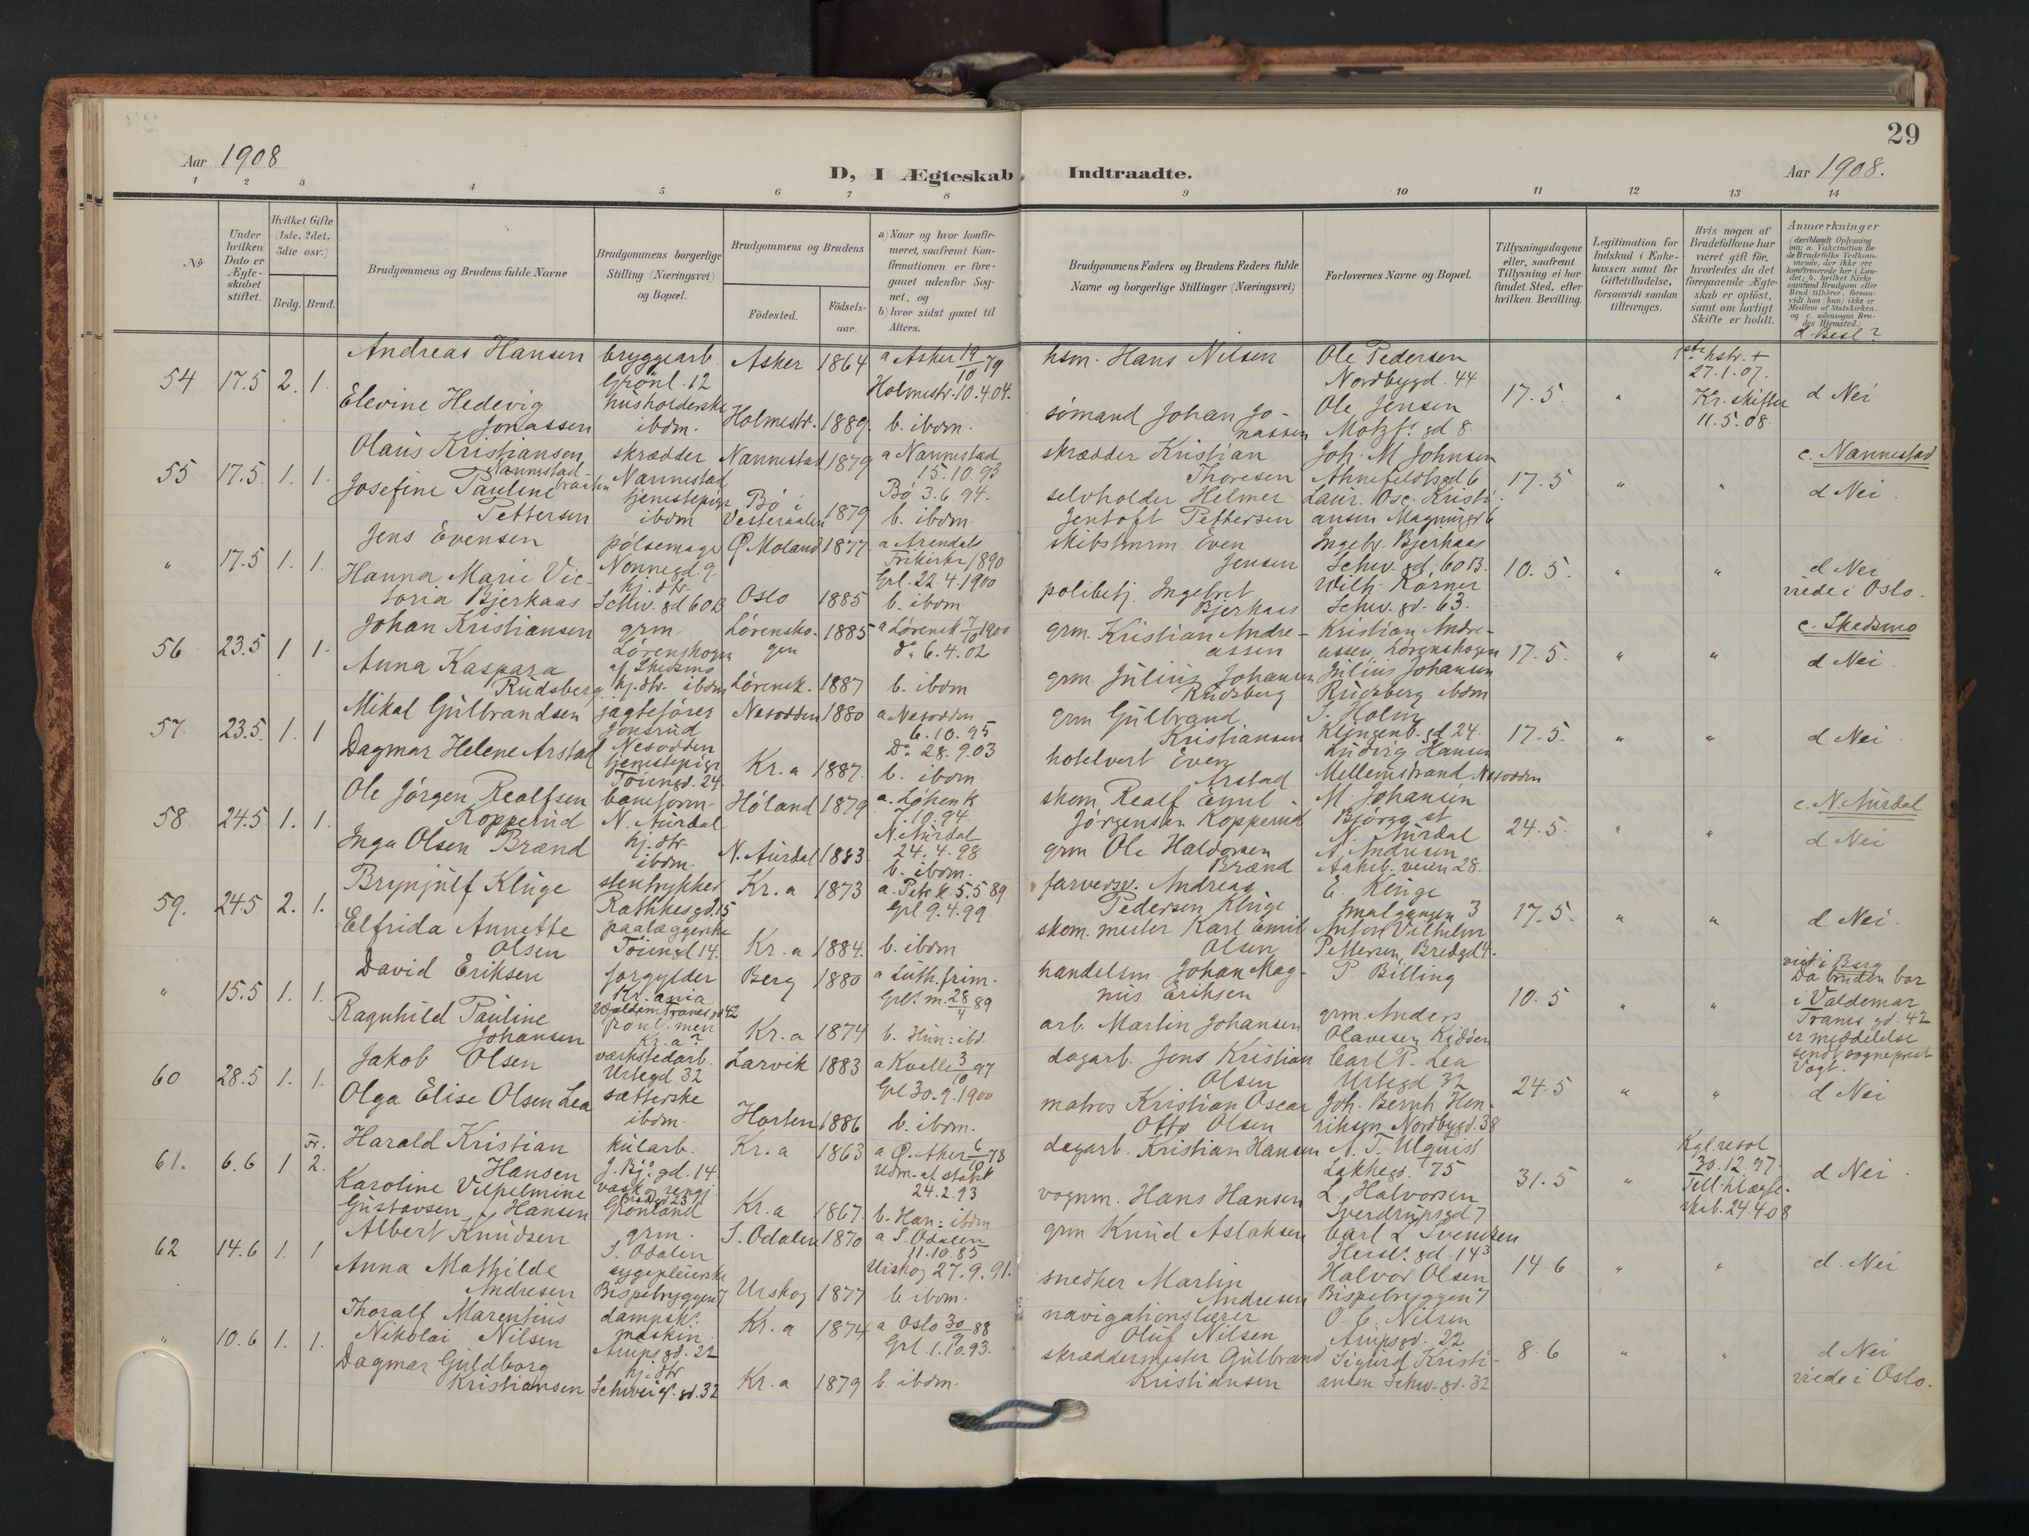 29
Aar 1908
Aar 1908.
D, I Ægteskab Indtraadte.
1 2 3 4 5 6 7 8 9 10 11 12 13 14
No
Under hvilken Dato er Ægteskabet stiftet.
Hvilket Gifte (1ste, 2det, 3die osv.)
Brdg. Brud.
Brudgommens og Brudens fulde Navne
Brudgommens borgerlige Stilling (Næringsvei) og Bopæl.
Brudgommens og Brudens
Fødested. Fødselsaar.
a) Naar og hvor konfirmeret, saafremt Konfirmationen er foregaaet udenfor Sognet, og
b) hvor sidst gaaet til Alters.
Brudgommens Faders og Brudens Faders fulde Navne og borgerlige Stillinger (Næringsvei)
Forlovernes Navne og Bopæl.
Tillysningsdagene eller, saafremt Tillysning ei har fundet Sted, efter hvilken Bevilling.
Legitimation for Indskud i Enkekassen samt for Giftetilladelse, forsaavidt saadan tiltrænges.
Hvis nogen af Brudefolkene har været gift før, hvorledes da det foregaaende Ægteskab er opløst, samt om lovligt Skifte er holdt.
Anmærkninger
d Besl?
54 17.5 2. 1.
Andreas Hansen
bryggearb. Grönl. 12
Asker 1864
a Asker 19/10 79
Holmestr. 10.4.04.
hsm. Hans Nilsen
Ole Pedersen
Nordbygd. 44
17.5 "
1ste hstr. +
27.1.07.
Kr. skifter
11.5.08.
d Nei
Elevine Hedevig
Jonassen
husholderske
ibdm.
Holmestr. 1889.
b. ibdm.
sømand Johan Jonassen
Ole Jensen
Motzf. gd 8
55 17.5 1. 1.
Olaus Kristiansen
Nannestadbraaten
skrædder
Nannestad
Nannestad 1879
a Nannestad
15.10.93
skrædder Kristian
Thoresen
Joh. M Johnsen
Ahnefeldtsgd 6
17.5 " "
c. Nannestad
d Nei.
Josefine Pauline
Pettersen
tjenestepige
ibdm
Bø i
Vesteraalen 1879
Bø 3.6.94.
b. ibdm
selvholder Helmer
Jentoft Pettersen
Laur. Osc. Kristiansen Magnusgd 6
" 17.5 1. 1.
Jens Evensen
pølsemager
Nonnegd. 9
Ø Moland 1877
a Arendals
Frikirke 1890
Grl. 22.4.1900
skibstmrm. Even
Jensen
Ingebr. Bjerkaas
Schw. gd. 60 B.
10.5. " "
d Nei
viede i Oslo.
Hanna Marie Victoria Bjerkaas
hj. dtr.
Schw. gd 60 B
Oslo 1885
b. ibdm
politibetj. Ingebret
Bjerkaas
Wilh. Körner
Schw. gd. 63.
56 23.5 1 1.
Johan Kristiansen
grm.
Lørenskogen
af Skedsmo
Lørenskogen 1885
a Lørensk 7/10 1900
do 6.4.02
grm. Kristian Andreassen
Kristian Andreassen, Lørenskogen
17.5 " "
c. Skedsmo
d Nei.
Anna Kaspara
Rudsberg
hj. dtr. ibdm
Lørensk. 1887
b. ibdm
grm. Julius Johansen
Rudsberg
Julius Johansen
Rudsberg ibdm
57. 23.5. 1. 1
Mikal Gulbrandsen
jagtefører
Nesodden
Nesodden 1880
a Nesodden
6.10.95
Do 28.9.03
grm Gulbrand
Kristiansen
J. Holm
Klingenb. gd 24.
17.5. " "
d Nei
Dagmar Helene Arstad
tjenestepige
Töiengd. 24
Kr.a 1887.
b. ibdm
hotelvert Even
Arstad
Ludvig Hansen
Mellemstrand Nesodden
58 24.5 1. 1.
Ole Jørgen Realfsen
Kopperud
baneform.
N. Aurdal
Høland 1879
7.10.94
N. Aurdal
24.4.98
skom. Realf Emil
Jørgensen Kopperud
M. Johansen
Bjørgg st
N. Aurdal
24.5. " "
c. N. Aurdal
d Nei
Inga Olsen Brænd
hj. dtr.
ibdm.
N. Aurdal 1883.
b. ibdm.
grm Ole Haldorsen
Brænd
A. Andresen
Aakeb. veien 28.
59. 24.5 2. 1.
Brynjulf Kluge
stentrykker
Rathkesgd. 15
Kr.a 1873
a. Petr. k. 5.5 89
Grl 9.4.99
farversv. Andreas
Pedersen Kluge
E. Kluge
Smalgangen 3
17.5. " "
d Nei.
Elfrida Annette
Olsen
paalæggerske
Töiengd 14.
Kr.a 1884.
b. ibdm
skom. mester Karl Emil
Olsen
Anton Vilhelm
Pettersen, Bredgd 4.
" 15.5 1. 1.
David Eriksen
forgylder
Kr.ania
Berg 1880
a Luth. frim.
Grl. m. 28/4 89
handelsm. Johan Magnus Eriksen
P. Billing
10.5 " "
viet i Berg
Da bruden bor
i Valdemar
Tranes gd. 42
er meddelelse
sendt sogneprest
Vogt.
Ragnhild Pauline
Johansen
Valdem. Tranes gd 42
Kr.a?
Kr.a 1874
b. Hun: ibd.
arb. Martin Johansen
grm. Anders
Olavesen
60 28.5 1. 1.
Jakob Olsen
værkstedarb.
Urtegd 32
Larvik 1883
a Kvelle 3/10 97
Grl 30.9.1900
dagarb. Jens Kristian
Olsen
Carl P. Lea
Urtegd 32
24.5 " "
d Nei
Olga Elise Olsen Lea
sætterske
ibdm.
Horten 1886
b. ibdm.
matros Kristian Oscar
Otto Olsen
Joh. Bernh Henriksen Nordbygd. 38
61. 6.6 1 Fr. 2.
Harald Kristian
Hansen
kularb.
J. Bj. gd. 14
Kr.a 1863
a Ø. Aker 6/10 78
Udm. at statsk
24.2.93
dagarb. Kristian Hansen
A. T. Ulquist
Lakkegd. 75
31.5 "
Kgl. resol
30.12.97.
Till. til ægteskab. 24.4.08
d Nei.
Karoline Vilhelmine
Gustavsen f. Hansen
vask. & rengj.
Bredgd 23
Grønland
Kr.a 1867.
b. Han: ibdm
vognm. Hans Hansen
L. Halvorsen
Sverdrupsgd 7
62 14.6 1. 1
Albert Knudsen
grm.
S. Odalen
S. Odalen 1870
a S. Odalen
11.10.85
Urskog 27.9.91.
grm Knud Aslaksen
Carl L Svendsen
Hersl. gd. 14³
14.6 " "
d. Nei
Anna Mathilde
Andresen
sygepleierske
Bispebryggen 7
Urskog 1877
b ibdm.
snedker Martin
Andresen
Halvor Olsen
Bispebryggen 7
" 10.6 1. 1.
Thoralf Marentius
Nikolai Nilsen
dampsk.
maskin.
Arupsgd. 22
Kr.a 1874
a Oslo 30/9 88
Grl. 1.10.93.
navigationslærer
Oluf Nilsen
O. C. Nilsen
Arupsgd. 22
8.6 " "
d Nei
viede i Oslo.
Dagmar Guldborg
Kristiansen
hj. dtr
Schweig. gd. 32
Kr.a 1879
b. ibdm.
skræddermester Gulbrand
Kristiansen
Sigurd Kristiansen Schw. gd. 32